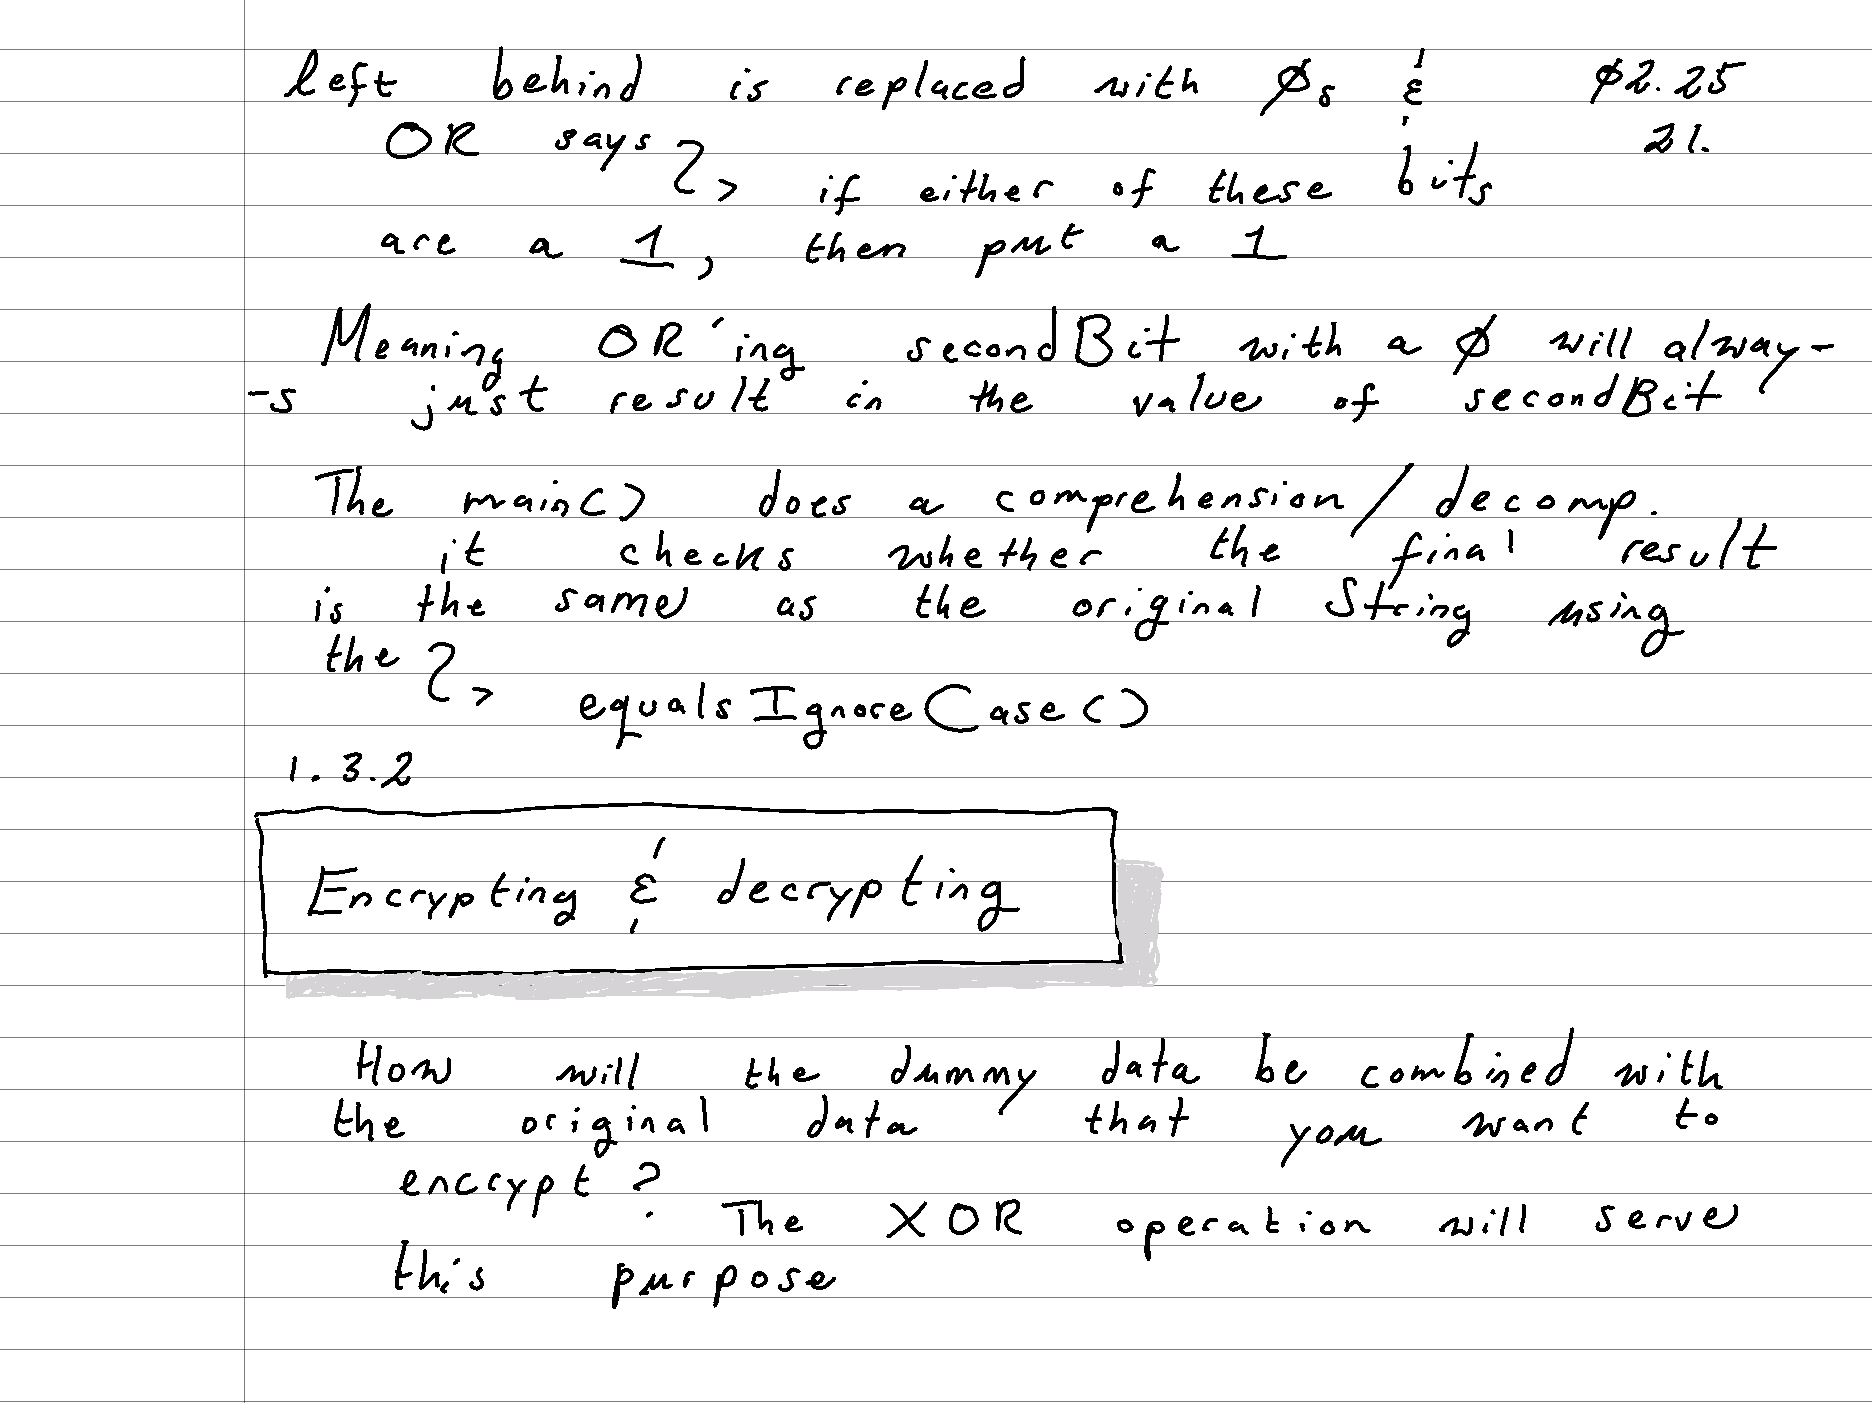 left behind is replaced with Øs & Ø2.25
OR says 21.
if either of these bits
are a 1, then put a 1
Meaning OR'ing secondBit with a Ø will alway-
-s just result in the value of secondBit
The main() does a comprehension/decomp.
it checks whether the final result
is the same as the original String using
the
equalsIgnoreCase()
1.3.2
Encrypting & decrypting
How will the dummy data be combined with
the original data that you want to
encrypt?
The XOR operation will serve
this purpose